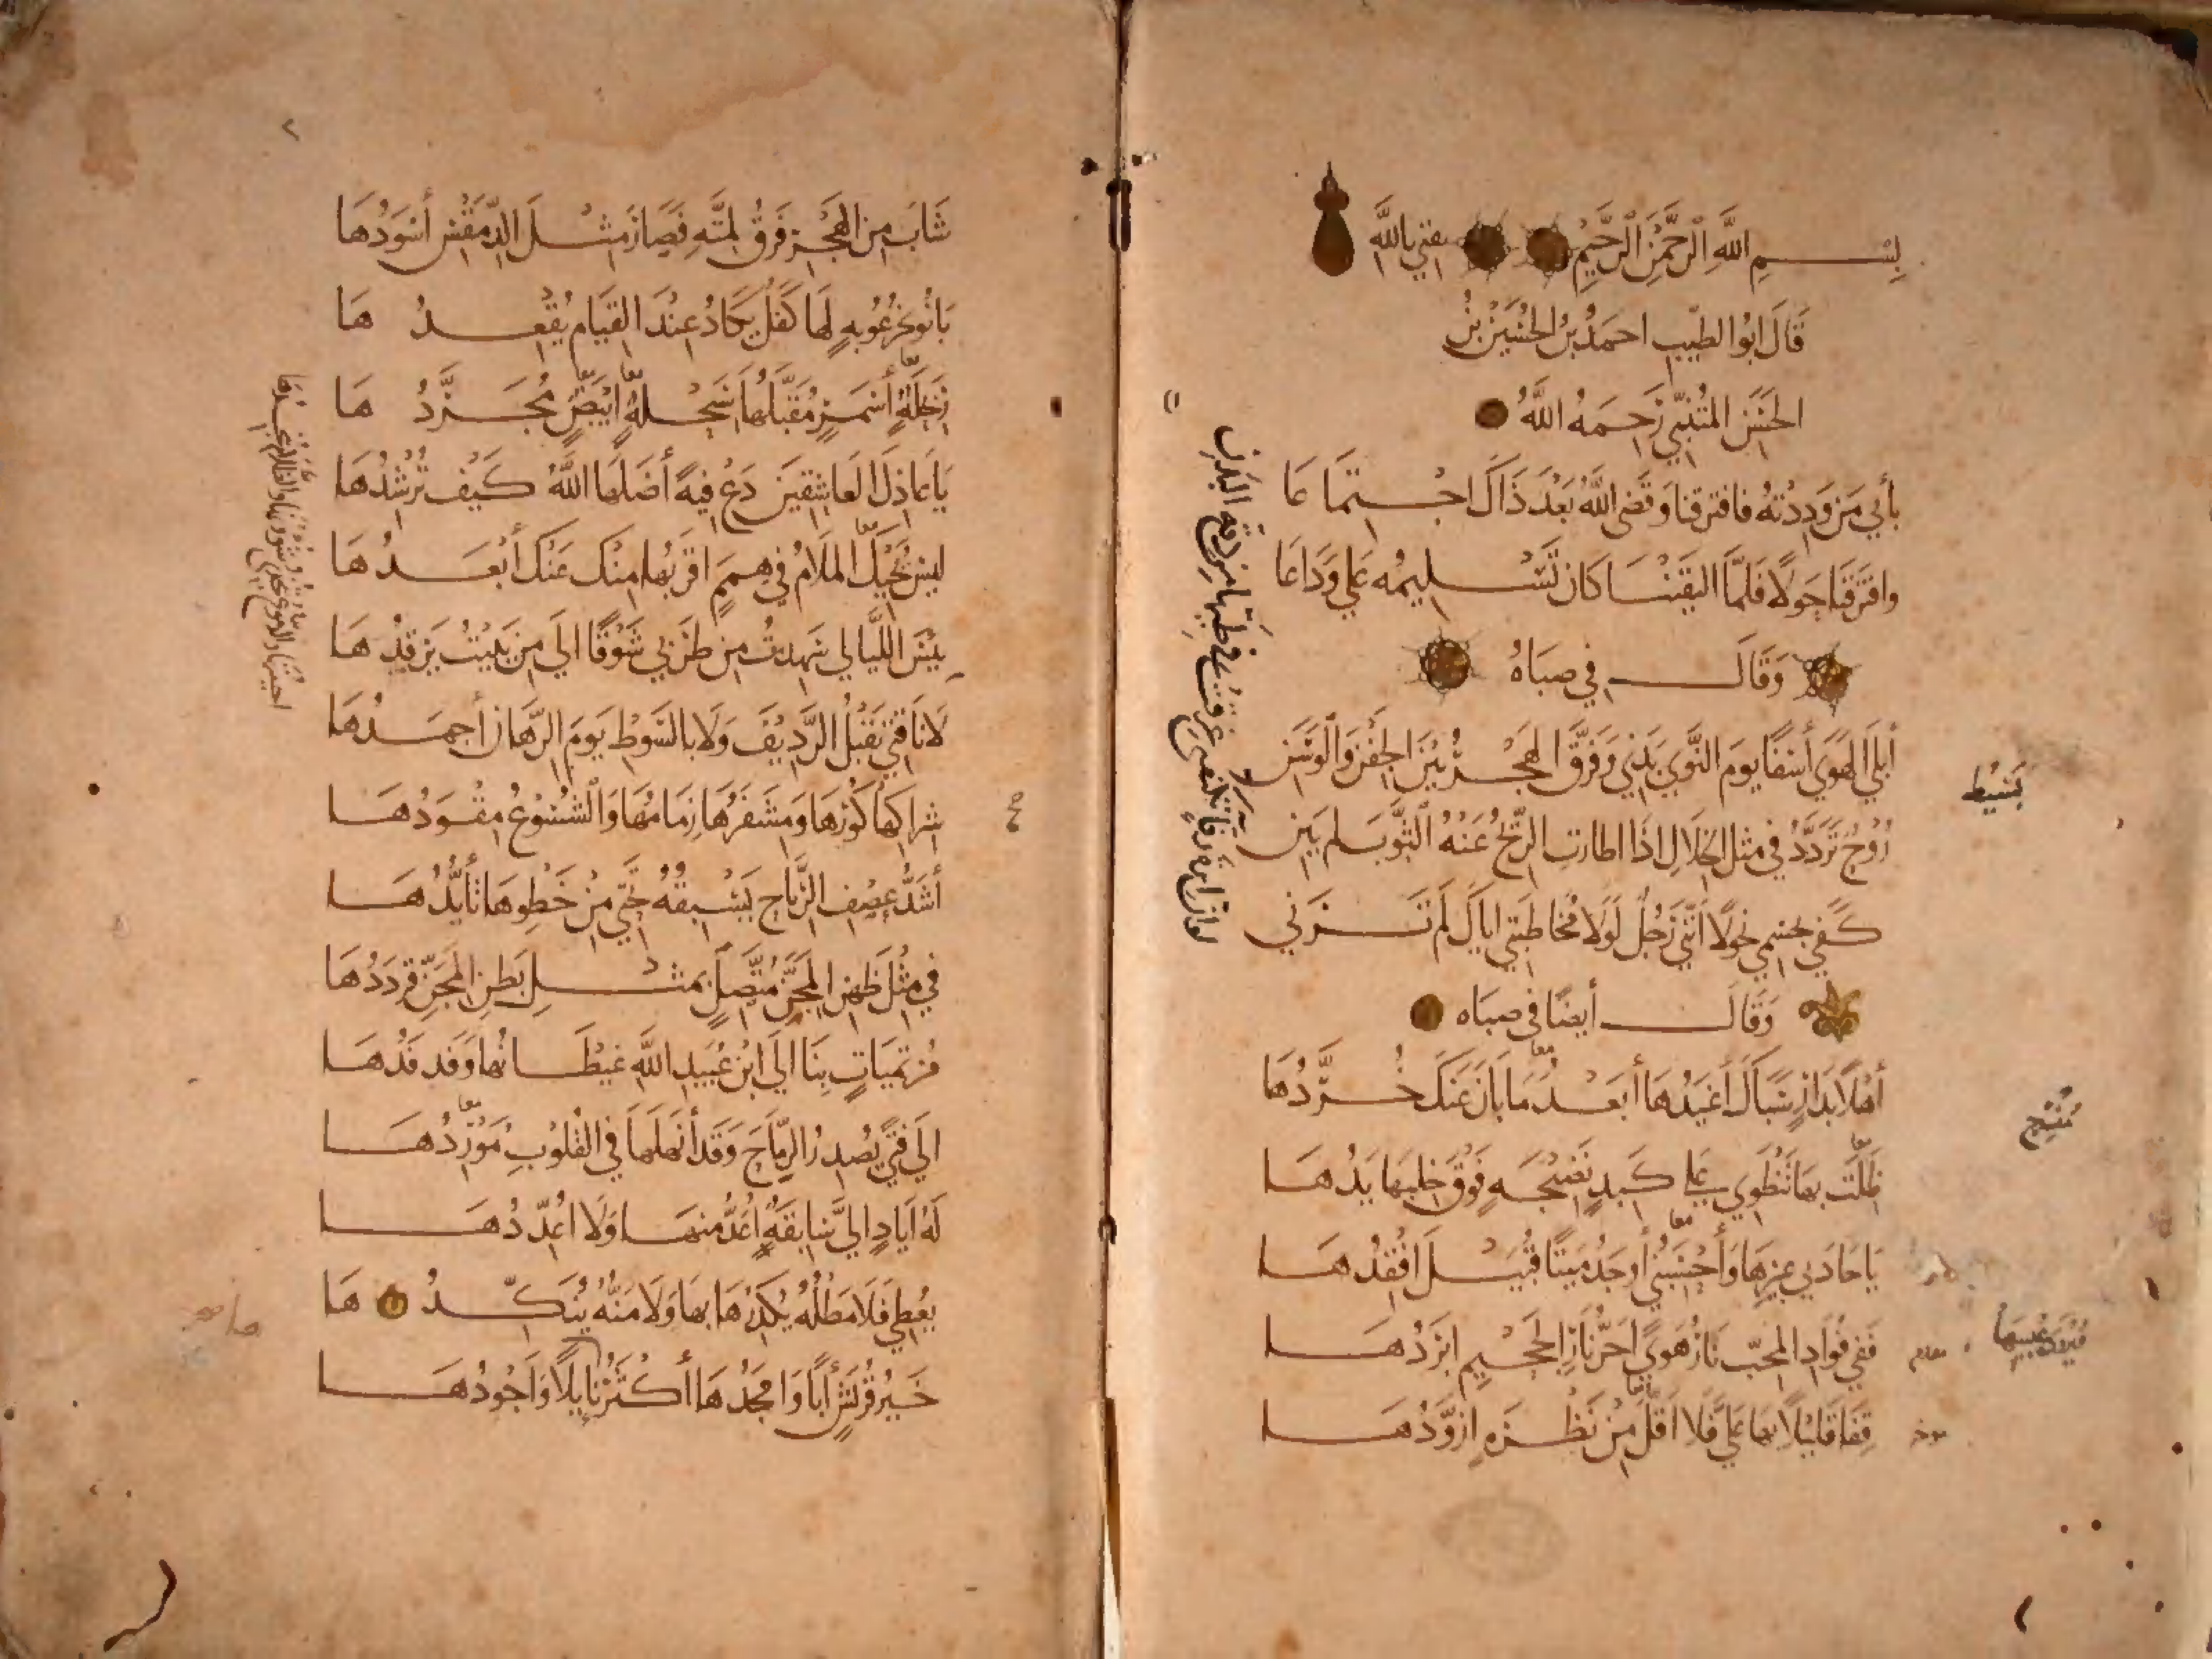 بِسْمِ اللَّهِ الرَّحْمَنِ الرَّحِيمِ ثقتي بالله
قَالَ ابُو الطيّب احمَدُ بنُ الحُسَيْن بنِ
الحَسَن المتَنبّي رَحِمَهُ اللَّهُ
بأبي مَن وَدِدْتهُ فافترقنا وَقَضى اللَّهُ بَعْدَ ذَاكَ اجْتِمَاعَا
وافترَقنَا حَولًا فَلمَّا التقَيْنَا كَان تَسْلِيمُه عَلي وَدَاعَا
وَقَالَ في صبَاهُ
أبْلَي الهَوَي أسَفًا يومَ النَّوَي بَدَني وَفرَّقَ الهَجْرُ بَيْنَ الجَفْنِ وَالْوَسَنِ
رُوحٌ تَرَدَّدُ في مثل الخِلالِ اذَا اطارتِ الرِّيحُ عَنْهُ الثَّوْبَ لم يَبِنِ
كَفَي بجسْمِي نحُولًا أنَّني رَجُلٌ لَوْلَا مُخَاطَبَتي ايَّاكَ لَم تَرَنِي
وَقَالَ أيضًا في صبَاه
أهْلًا بدَارٍ سَبَاكَ أغيَدُهَا أبعَدُ مَا بَانَ عَنكَ خُرَّدُهَا
ظَلْتَ بهَا تَنْطَوِي عَلي كَبدٍ نَضِيجَةٍ فَوْقَ خِلبِهَا يَدُهَا
يَا حَادِيي عِيرِهَا وَأحْسَبُني أوجَدُ مَيتًا قُبَيْلَ افْقِدُهَا
قِفَا قَليْلًا بهَا عَليَّ فلا اقَلَّ مِنْ نَظْرَةٍ ازَوَّدُهَا
فَفي فُؤَادِ المُحِبّ نَارُ هَوًي احَرُّ نَارِ الجَحِيْم ابْرَدُهَا
بَسيْط
مُنْسَرح
شَابَ مِنَ الهَجْرِ فَرْقُ لِمَّتِهِ فَصَارَ مثْلَ الدِّمَقْسِ أسْوَدُهَا
بَانُوا بخُرْعُوبةٍ لهَا كَفَلٌ يكَادُ عِنْدَ القِيَام يُقْعِدُهَا
رِبَحْلَةٍ أسْمَرٍ مُقَبَّلُهَا سِبَحْلَةٍ ابْيَضٍ مُجَرَّدُهَا
يَا عَاذِلَ العَاشِقِينَ دَعْ فِيَةً أضَلَّهَا اللَّهُ كَيْفَ تُرْشِدُهَا
ليسَ يُحِيكُ المَلَامُ في هِمَمٍ اقرَبُهَا مِنْكَ عَنْكَ أبْعَدُهَا
بِئْسَ اللَّيَالي سَهِدْتُ مِن طَرَبي شَوْقًا الَي مَن يَبيْتُ يَرْقُدُهَا
لَا نَاقَتي تَقْبَلُ الرَّدِيفَ وَلَا بالسَّوْطِ يَومَ الرِّهَانِ أجهِدُهَا
شِرَاكُهَا كُوْرُهَا وَمِشْفَرُهَا زِمَامُهَا وَالشُّسُوعُ مِقْوَدُهَا
أشَدُّ عَصْفِ الرِّيَاحِ يَسْبِقُهُ تَحْتِي مِنْ خَطْوِهَا تَأيُّدُهَا
في مِثْلِ ظَهْرِ المِجَنِّ مُتَّصِلٍ بمثْلِ بَطنِ المِجَنِّ قَرْدَدُهَا
مُرْتَمِيَاتٍ بِنَا الَي ابْنِ عُبَيدِ اللَّهِ غِيْطَانُهَا وَفَدفَدُهَا
الَي فَتًي يُصْدِرُ الرِّمَاحَ وَقَدْ أنهَلَهَا في القُلوُبِ مُوْرِدُهَا
لَهُ ايَادٍ اليَّ سَابِقَةٌ اعَدُّ منهَا وَلَا اعَدِّدُهَا
يُعْطِي فَلَا مَطْلُهُ يُكَدِّرُهَا بهَا وَلَا مَنُّهُ يُنَكِّدُهَا
خَيْرُ قُرَيْشٍ أبًا وَامجَدُهَا أكْثَرُهَا نَايلًا وَاجْوَدُهَا